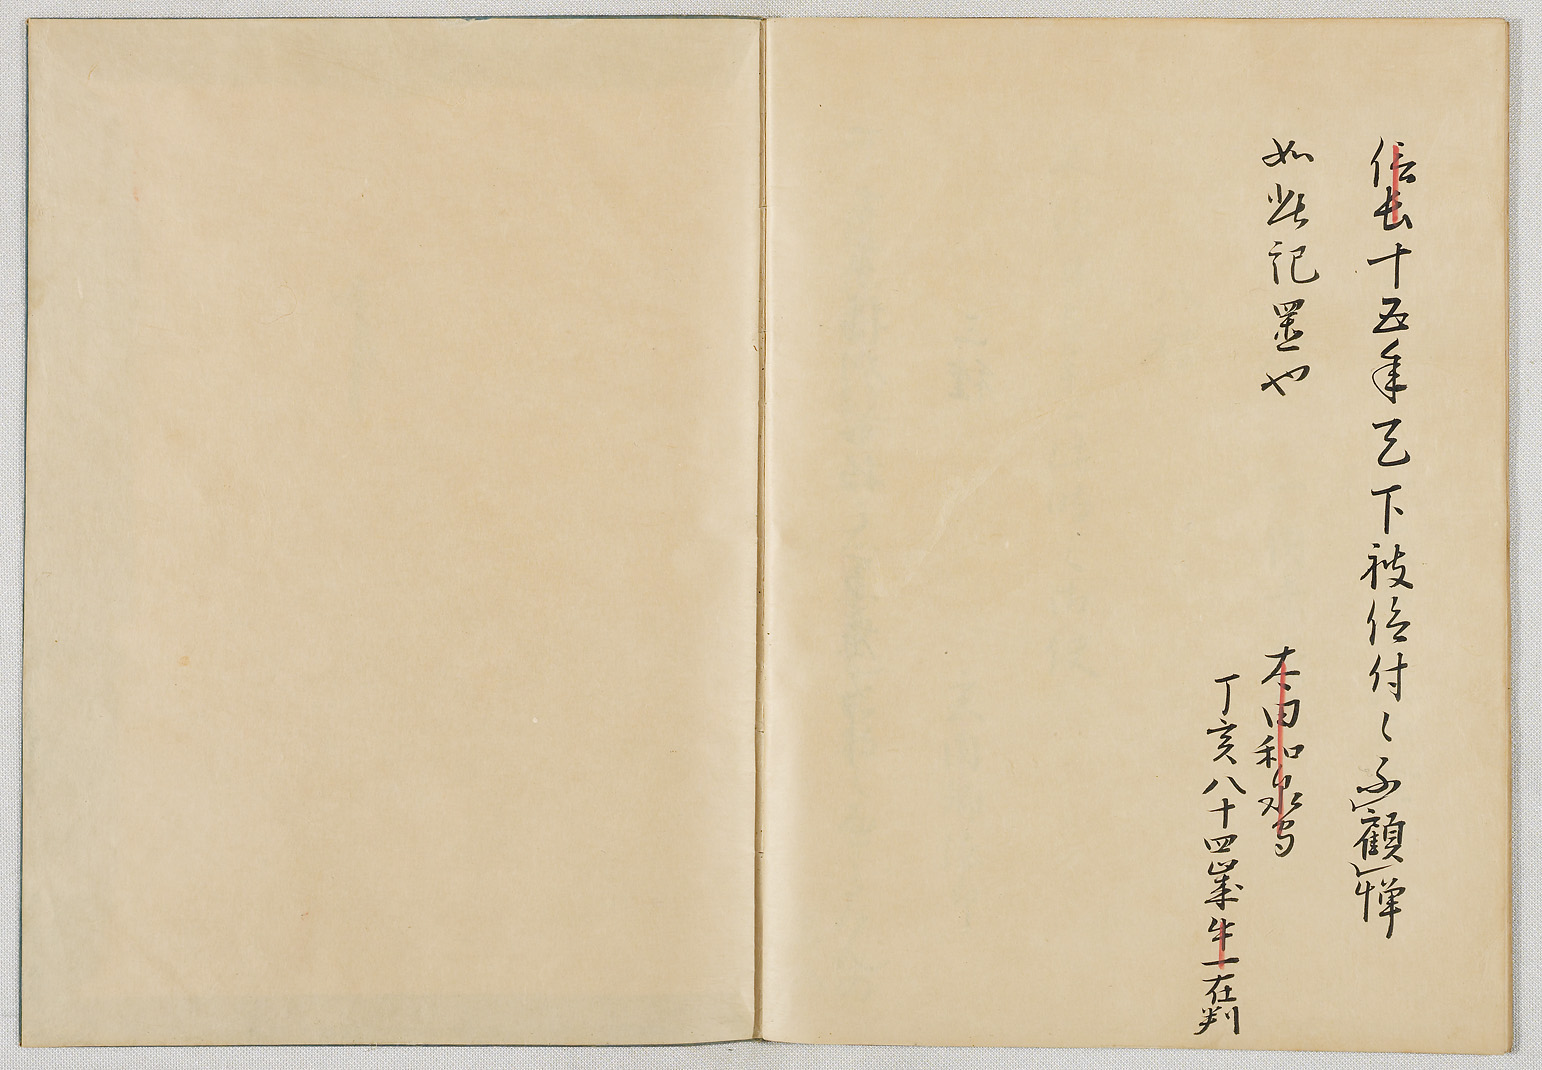 信長十五年天下被仰付候不顧憚
如此記置也
太田和泉守
丁亥八十四歳牛一在判